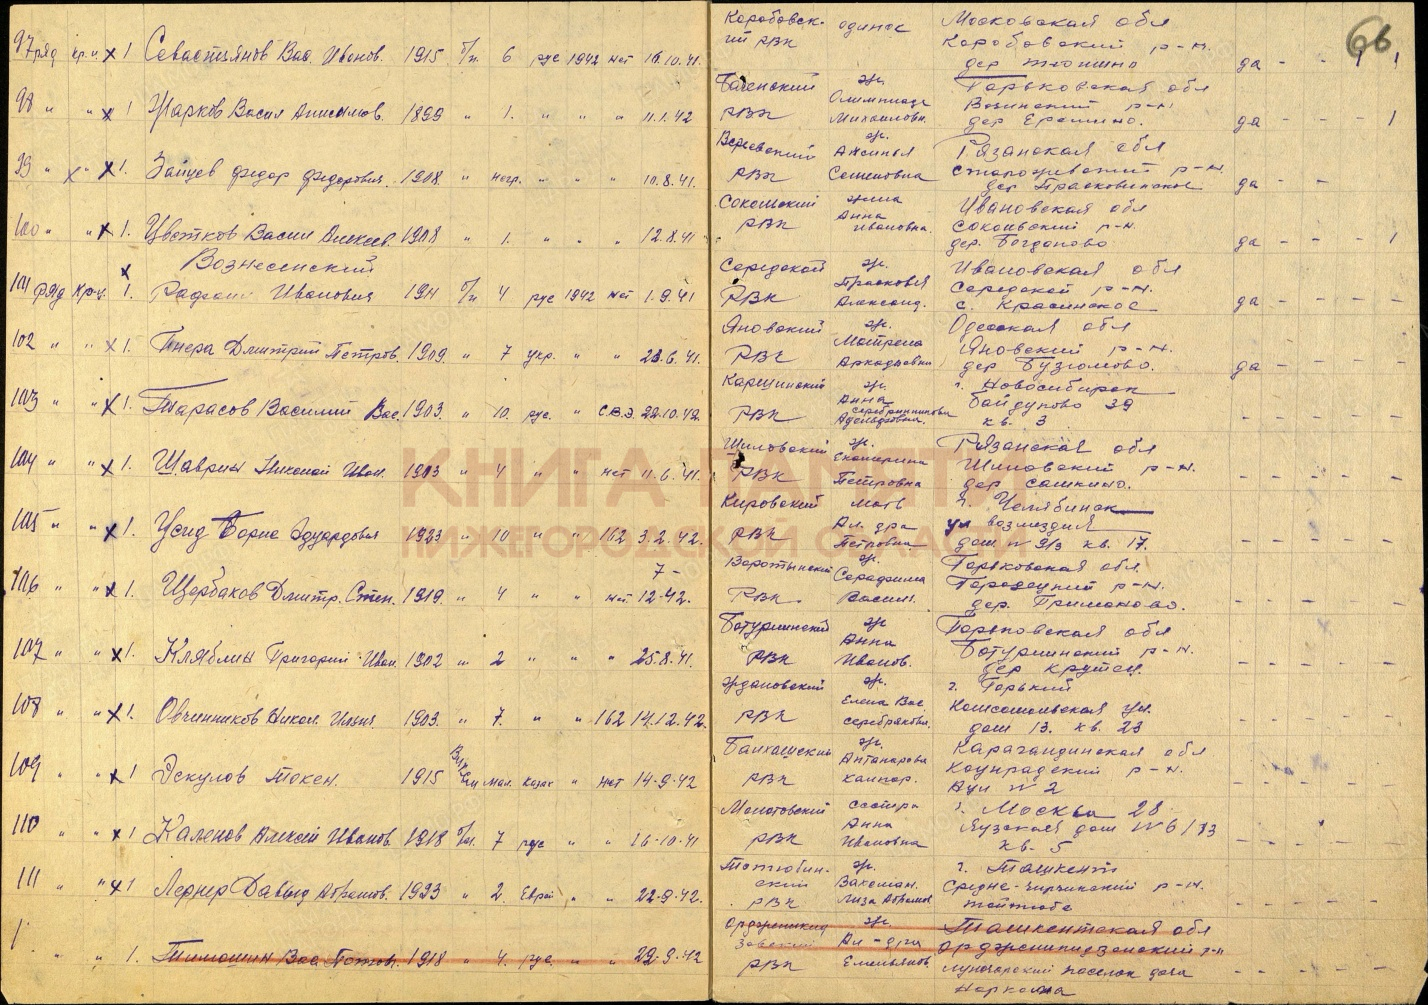 66
97 ряд кр-ц х 1 Севастьянов Вас. Иванов. 1915 б/п 6 рус 1942 нет 16.10.41. Коробовский РВК одинок Московская обл Коробовский р-н. дер да - - 1 1
98 " " х 1 Жарков Васил Анисимов. 1899 " 1. " " " 11.1.42 РВК ж. Олимпиада Михайловн. Горьковская обл Вознский р-н дер Ерешино. да - - - 1
99 " " х 1. Зайцев Федор Федорович. 1908. " негр. " " " 10.8.41. РВК ж. Аксинья Семеновна Рязанская обл р-н. дер да - -
100 " " х 1. Цветков Васил Алексеев. 1908 " 1. " " " 12.8.41 Сокольский РВК жена Анна Ивановна. Ивановская обл Сокольский р-н дер. Богданово да - - 1
101 ряд кр-ц. х 1. Вознесенский Иванович 1911 б/п 4 рус 1942 нет 1.9.41 Середской РВК ж. Прасковья Александ. Ивановская обл Середской р-н. с. Красинское да - - - -
102 " " х 1. Гнера Дмитрий Петров. 1909. " 7 укр. " " 23.6.41. Яновский РВК ж. Матрена Аркадьевна Одесская обл Яновский р-н. дер Бузиново. да -
103 " " х 1. Тарасов Василий Вас. 1903. " 10. рус. " С.В.Э. 22.10.42. РВК ж. Анна Серебрянникова г. Новосибирск Байдуково 39 кв. 3 - - - - -
104 " " х 1. Шаврин Николай Иван. 1903 " 4 " " нет 11.6.41. Шиловский РВК ж. Екатерина Петровна Рязанская обл Шиловский р-н. дер Сашкино. - - - - -
105 " " х 1. Усид Борис Эдуардович 1923 " 10 " " 162 3.2.42. Кировский РВК мать Ал. дра Петровна г. Челябинск ул возмездия дом № 9/3 кв. 17. - - - - -
106 " " х 1. Щербаков Дмитр. Степ. 1919. " 4 " " нет 7-12-42. Воротынский РВК. ж. Серафима Васил. Горьковская обл. Городецкий р-н. дер. Примоково. - - - - -
107 " " х 1. Кляблин Григорий Иван. 1902 " 2 " " " 25.8.41. Батурлинский РВК ж Анна Иванов. Горьковская обл Батурлинский р-н. дер крутец. - - - - -
108 " " х 1. Овчинников Никол. Ильич 1903. " 7. " " 162 14.12.42. Ждановский РВК ж. Елена Вас. Серебрякова. г. Горький Комсомольская ул. дом 13. кв. 23 - - - - -
109 " " х 1 Эскулов Токен. 1915 мал. Казах " нет 14-9-42 Балхашский РВК ж. Карагандинская обл Коунрадский р-н. Аул № 2 - - - - -
110 " " х 1 Каленов Алексей Иванов. 1918 б/п. 7 рус " " 16-10-41 Молотовский РВК сестра Анна Ивановна г. Москва 28 Яузская дом № 6/83 кв. 5 - - - - -
111 " " х 1 Лернер Давыд Абрамов. 1923 " 2. Еврей " " 22-9-42. РВК ж. Вахсман. Лиза Абрамов г. Ташкент Средне-Чирчикский р-н. - - - - -
" " 1. Тимошин Вас Петров. 1918 " 4. рус. " " 29-9-42 РВК ж. Ал-дра Емельянов. Ташкентская обл Орджоникидзевский р-н поселок дача Наркома - - - - -
КНИГА ПАМЯТИ
НИЖЕГОРОДСКОЙ ОБЛАСТИ